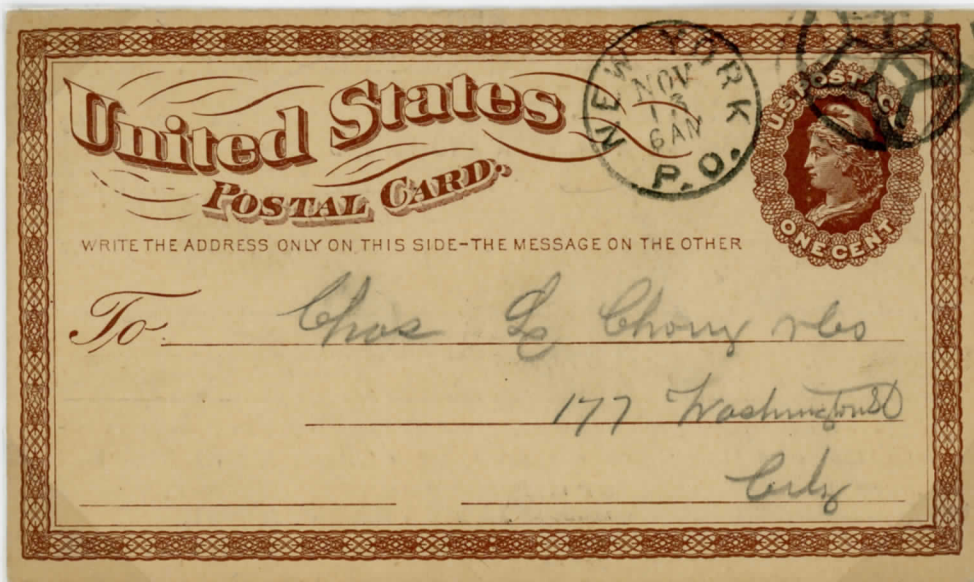 United States
POSTAL CARD.
NEW YORK
NOV
6 AM
P.O.
U.S. POSTAGE
ONE CENT
WRITE THE ADDRESS ONLY ON THIS SIDE-THE MESSAGE ON THE OTHER
To Chas & Co
177 Washington St
City